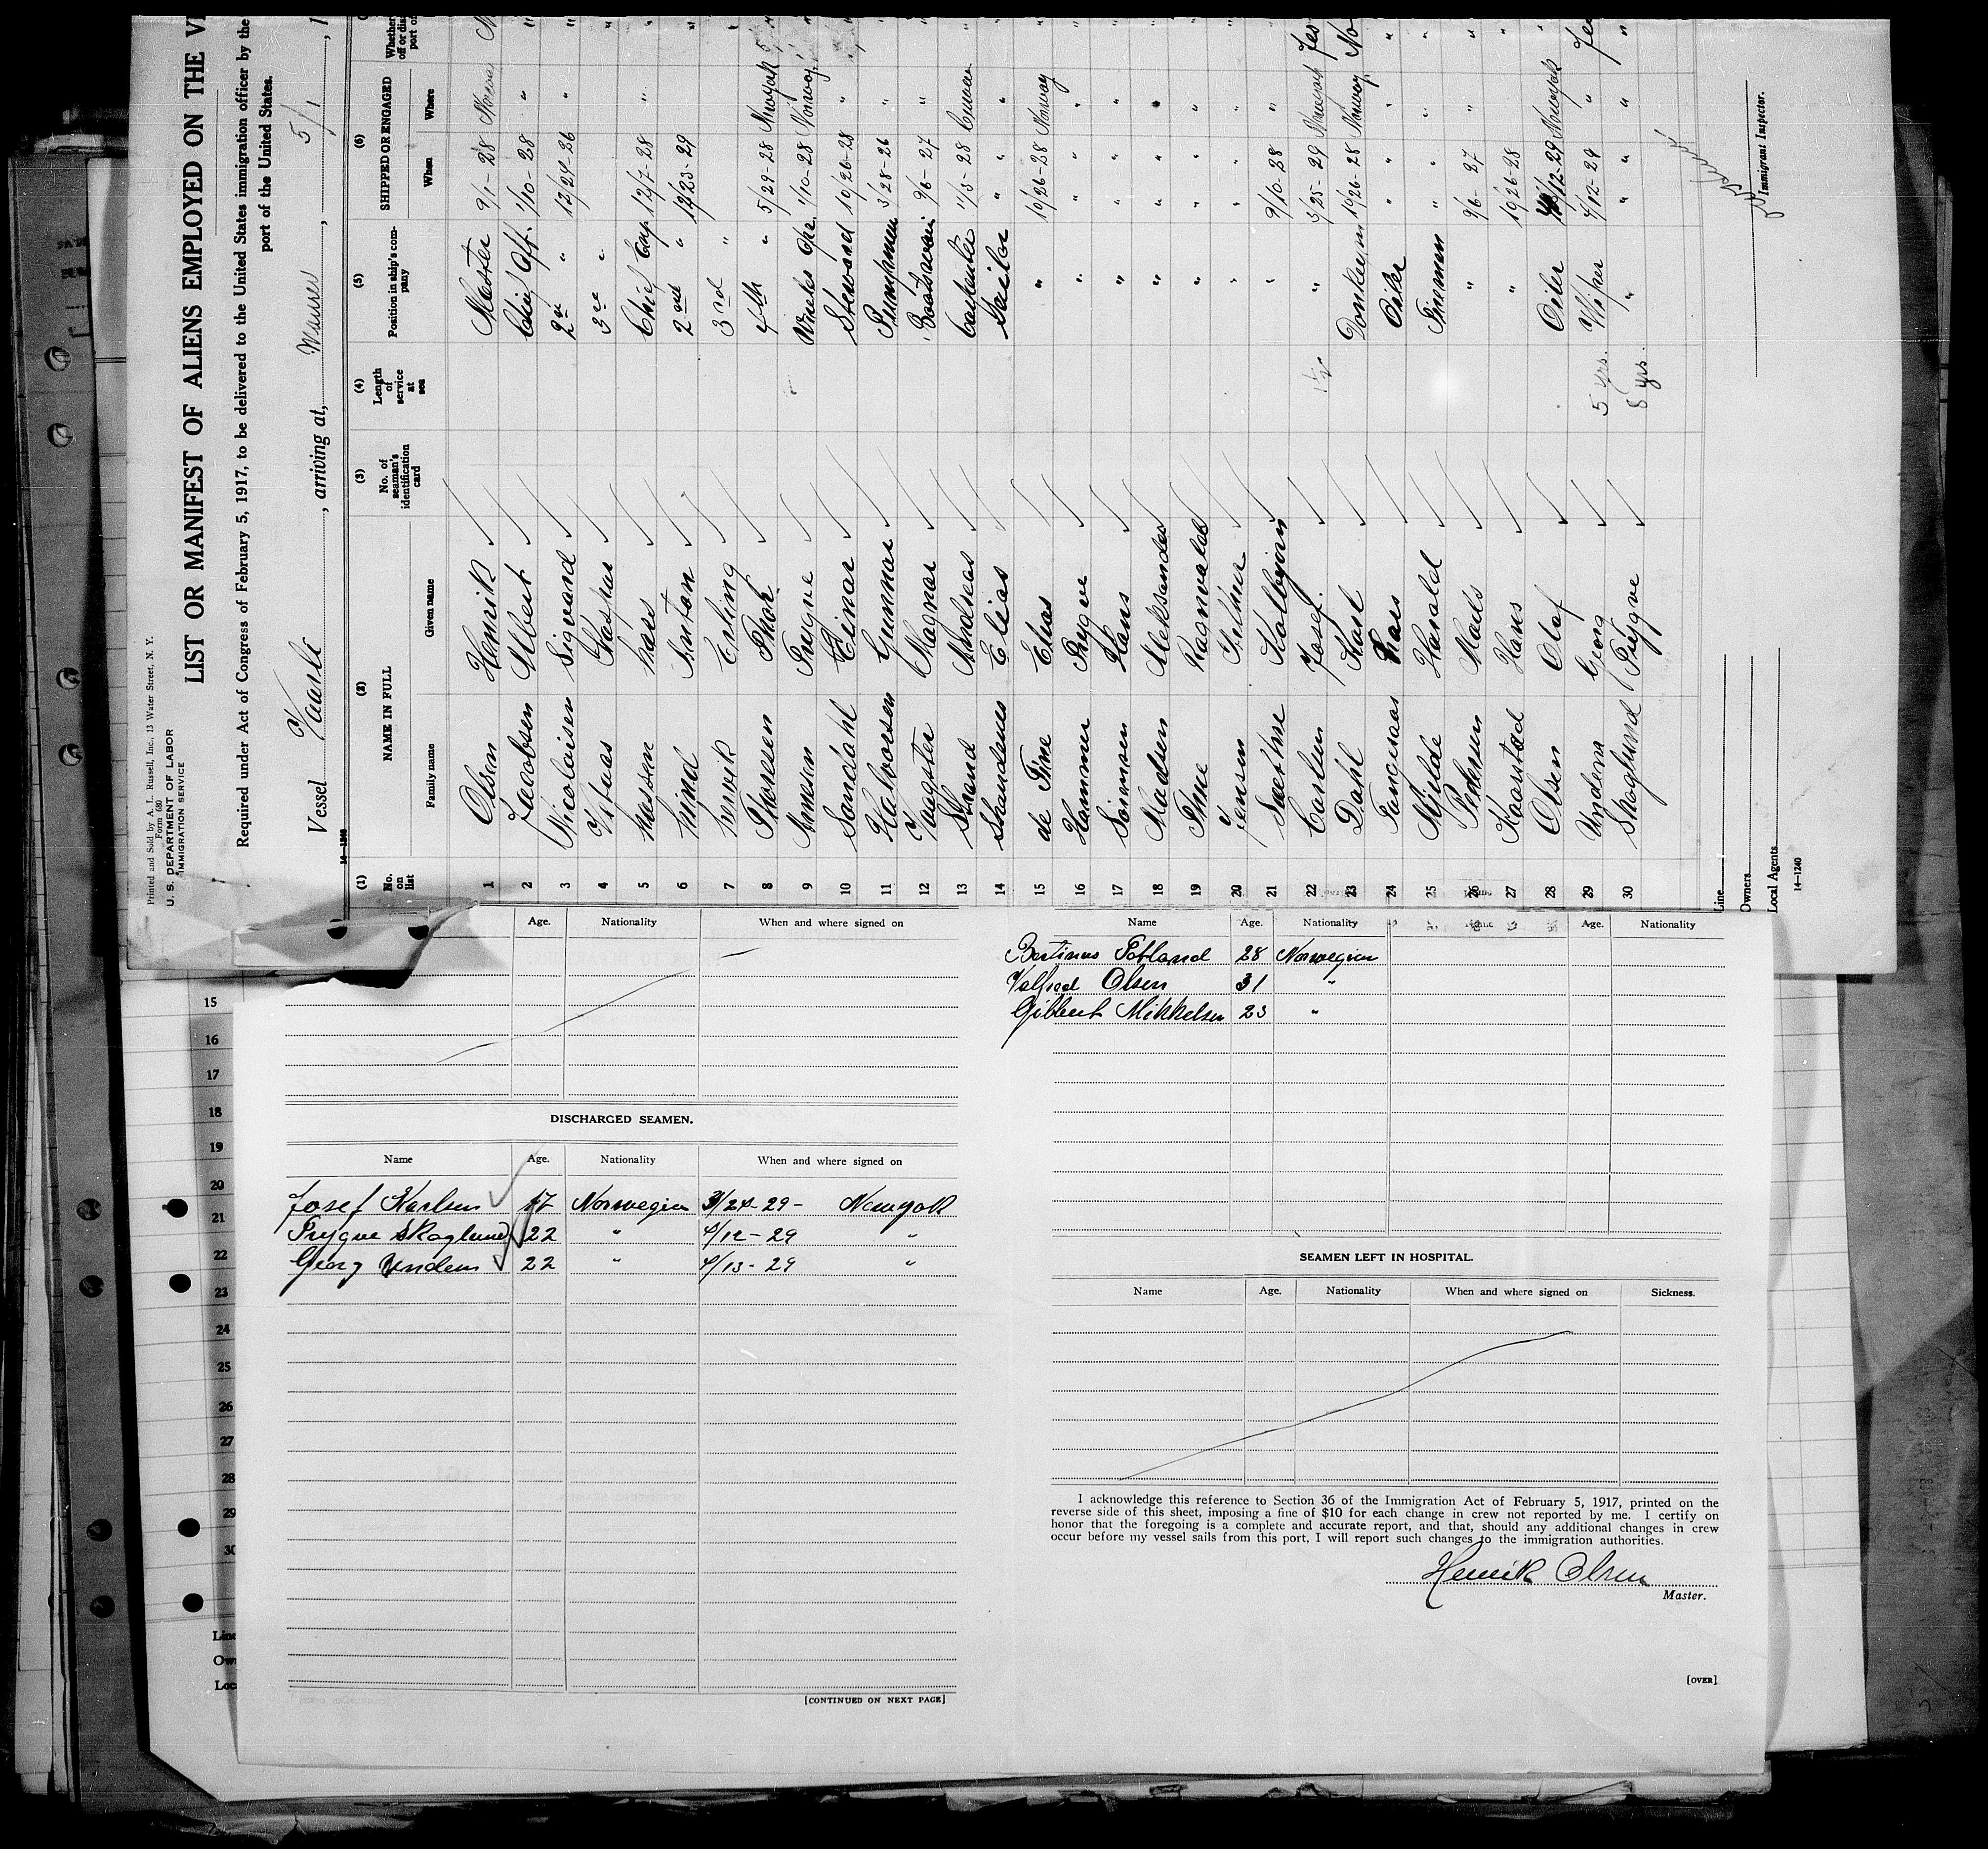 Printed and Sold by A. L. Russell, Inc., 13 Water Street, N. Y.
Form 680
U. S. DEPARTMENT OF LABOR
IMMIGRATION SERVICE
LIST OR MANIFEST OF ALIENS EMPLOYED ON THE
Required under Act of Congress of February 5, 1917, to be delivered to the United States immigration officer by the
port of the United States.
Vessel Vaarli, arriving at, 5/1, 1
14-1240
(1) (2) (3) (4) (5) (6)
No. on list NAME IN FULL No. of seaman's identification card Length of service at sea Position in ship's company SHIPPED OR ENGAGED Whether
Family name Given name When Where
1 Olsen Henrik Master 9/1-28
2 Jacobsen Albert Chief Off. 1/10-28 "
3 Nicolaisen Sigvard 2" 12/24-26 "
4 Kaspar "
5 Chief Eng. 12/7-28 "
6 2nd " 12/23-29
7 Erling 3rd "
8 Thoresen Thor 4th " 5/29-28 Newyork
9 Arnesen Trygve Wireless Opr. 1/10-28 Norway
10 Sandahl Einar Steward 10/26-28 "
11 Halvorsen Gunnar Pumpman 3/28-26 "
12 Magnar Boatswain 9/6-27 "
13 Strand Andreas Carpenter 11/3-28
14 Elias Sailor " "
15 de Fine Elias " 10/26-28 Norway
16 Hammer Trygve " " "
17 Hans " " "
18 Madsen Aleksander " "
19 Time Ragnvald " " "
20 Jensen " " "
21 Saethre Kolbjorn " 9/10-28 "
22 Carlsen Josef. " 3/25-29 Newyork Yes
23 Dahl Karl Donkeym 10/26-28 Norway No
24 Oiler " "
25 Mjelde Harald Firemen " "
26 Pedersen Mads " 9/6-27 "
27 Kaarstad Hans " 10/26-28 "
28 Olsen Olaf Oiler 4/12-29 Newyork
29 Undem Georg 5 yrs. Wiper 4/12-29 " Yes
30 Skoglund Trygve 8 yrs. " " " "
Line
Owners
Local Agents
14-1240
Immigrant Inspector.
Age. Nationality When and where signed on
DISCHARGED SEAMEN.
Name Age. Nationality When and where signed on
Josef Karlsen 17 Norwegian 3/24-29- Newyork
Trygve Skoglund 22 " 4/12-29 "
Georg Undem 22 " 4/13-29 "
[CONTINUED ON NEXT PAGE]
Name Age. Nationality Name Age. Nationality
Bertinus 28 Norwegian
Valfred Olsen 31 "
Gilbert Mikkelsen 23 "
SEAMEN LEFT IN HOSPITAL.
Name Age. Nationality When and where signed on Sickness.
I acknowledge this reference to Section 36 of the Immigration Act of February 5, 1917, printed on the
reverse side of this sheet, imposing a fine of $10 for each change in crew not reported by me. I certify on
honor that the foregoing is a complete and accurate report, and that, should any additional changes in crew
occur before my vessel sails from this port, I will report such changes to the immigration authorities.
Henrik Olsen
Master.
[OVER]
15
16
17
18
19
20
21
22
23
24
25
26
27
28
29
30
Line
Ow
Loc